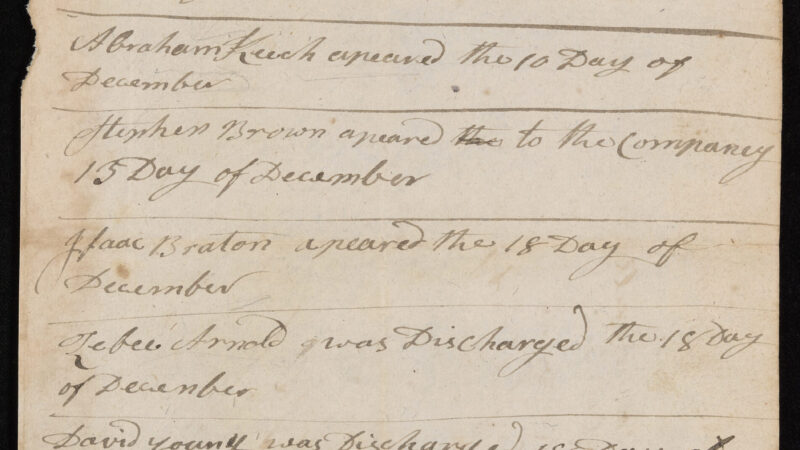 Abraham Keech apeared the 10 Day of
December
Stephen Brown apeared the to the Companey
15 Day of December
Isaac Braton apeared the 18 Day of
December
Zebee Arnold was Discharged the 18 Day
of December
David young was Discharged 18 Day of